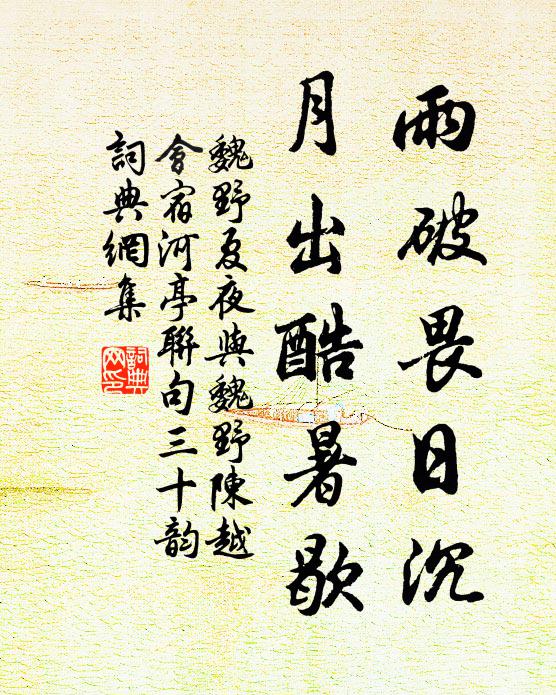 雨破畏日沉
月出酷暑歇
魏野夏夜與魏野陳越
會宿河亭聯句三十韵
詞典網集
詞典
网印